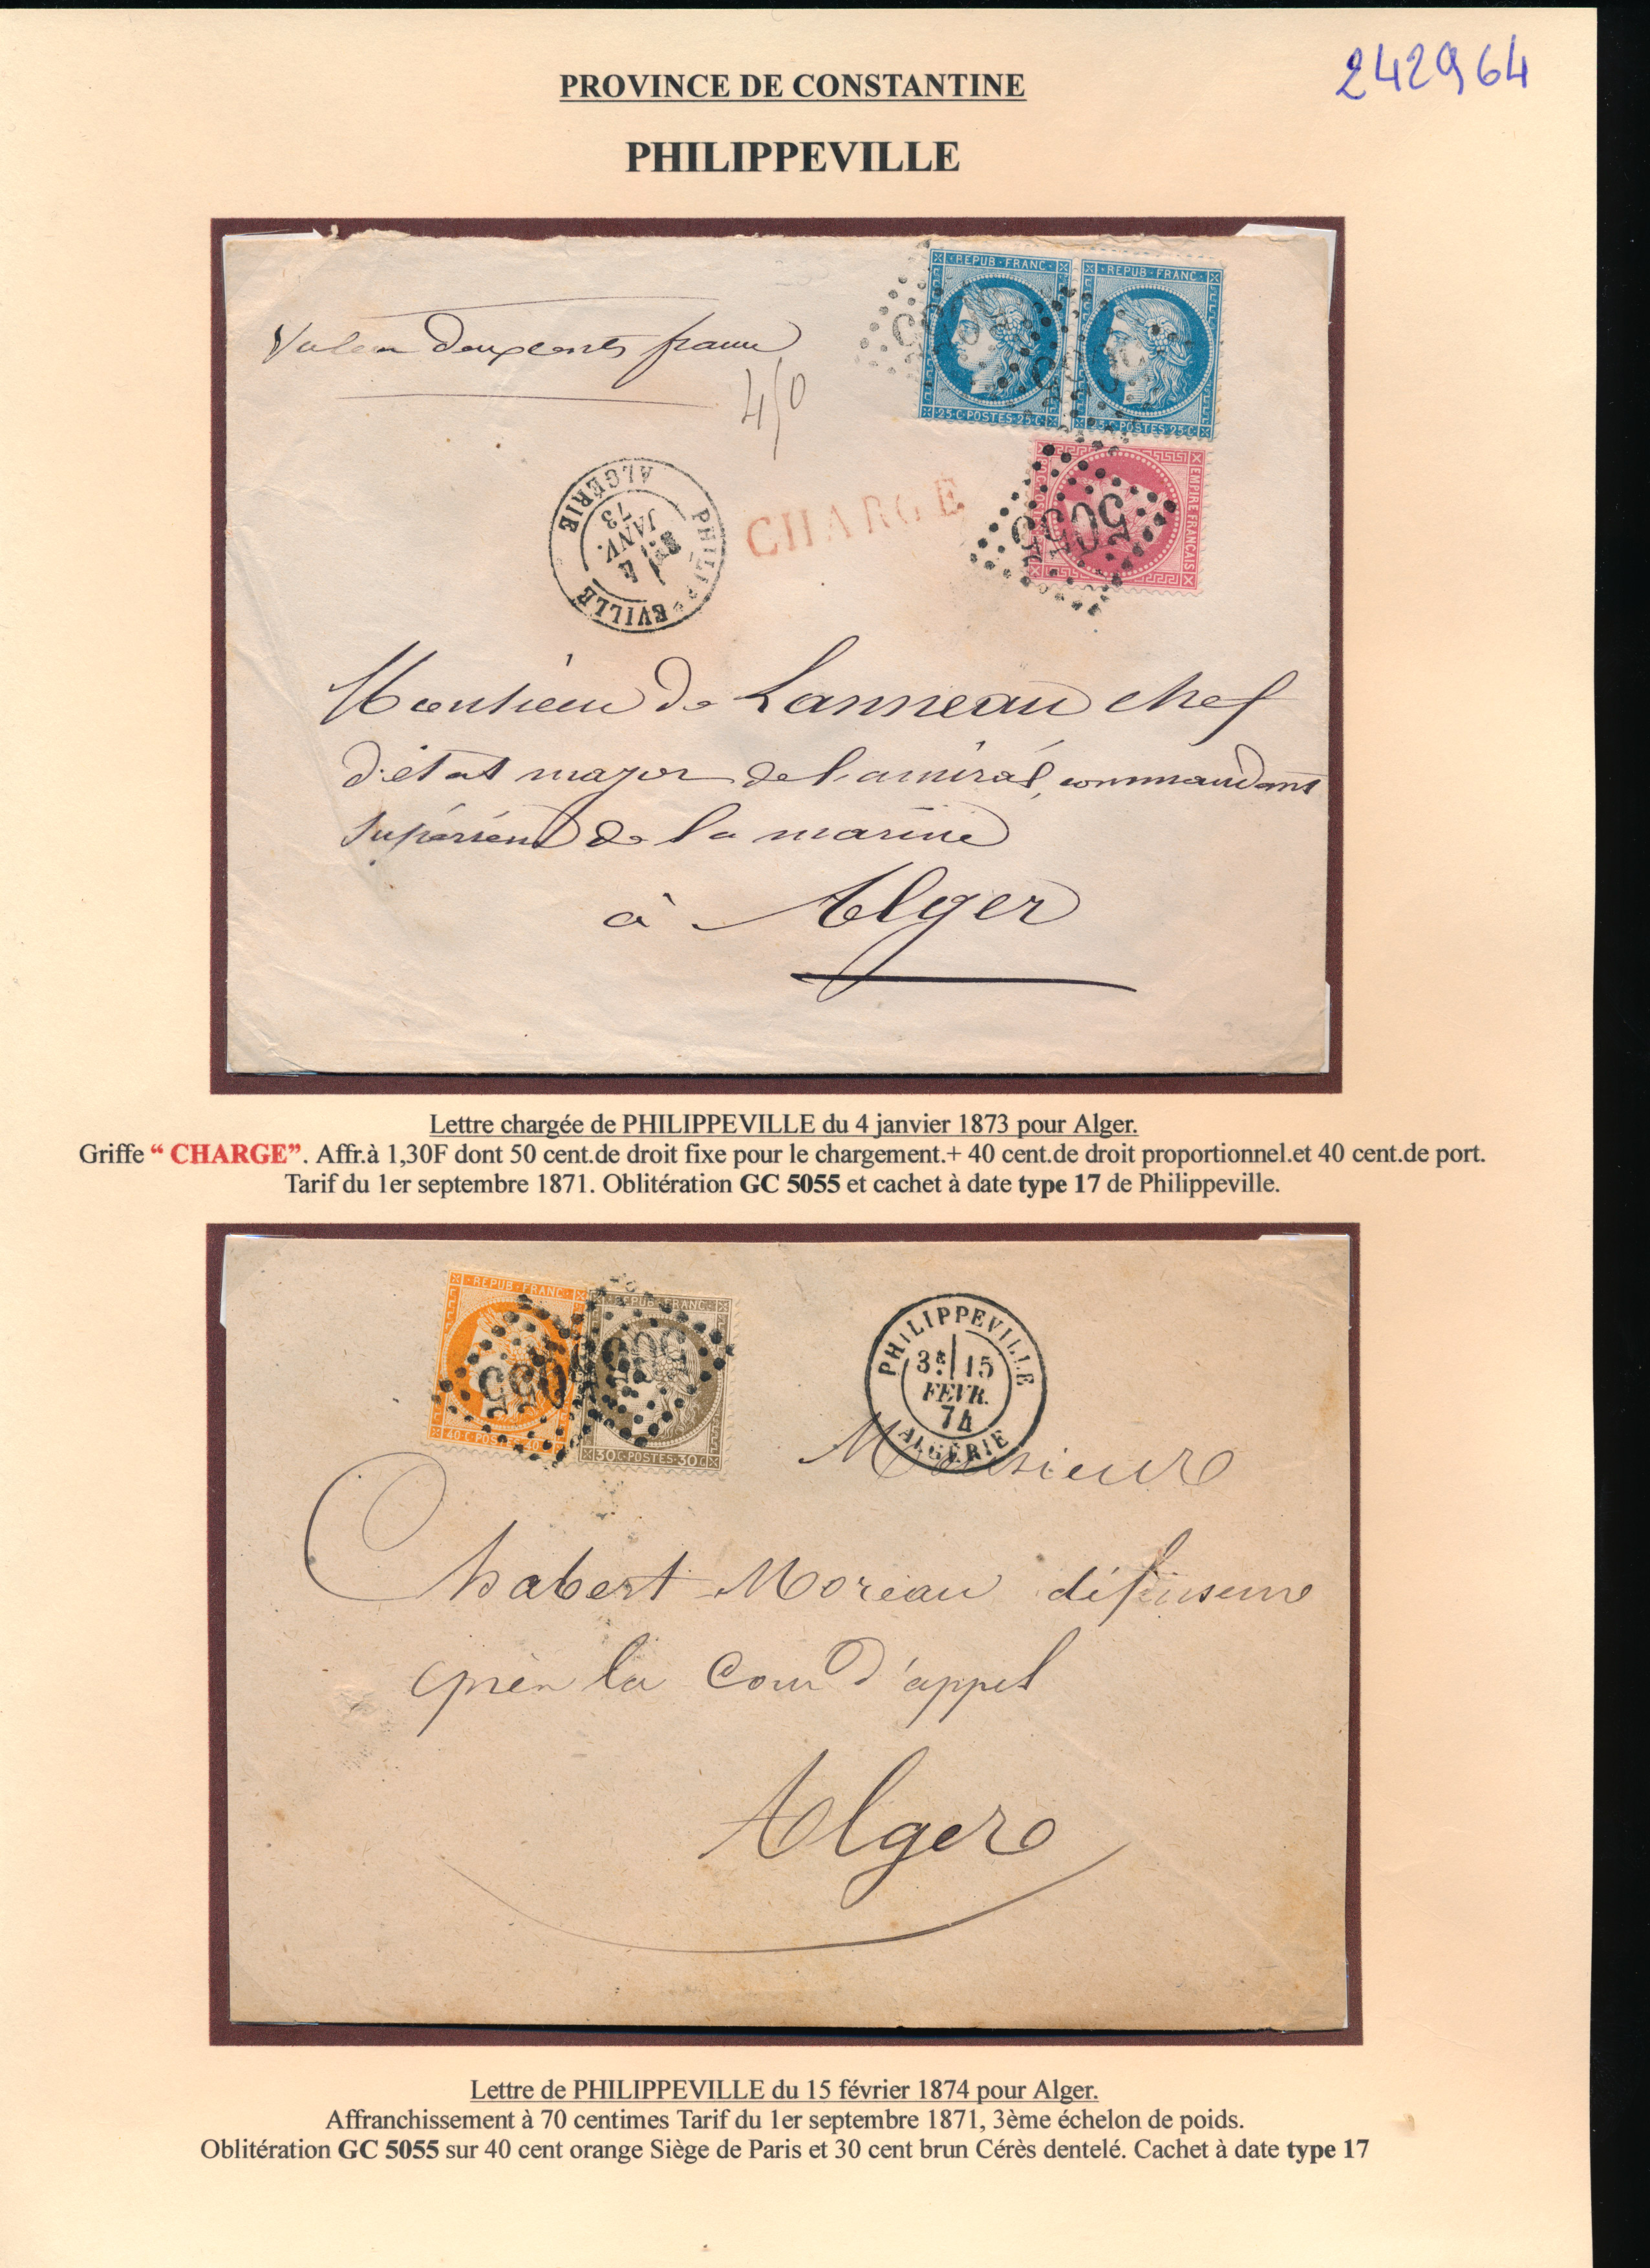 242964
PROVINCE DE CONSTANTINE
PHILIPPEVILLE
Valeur deux cents francs
450
REPUB·FRANC·
25·C·POSTES·25·C
REPUB·FRANC·
25·C·POSTES·25·C
EMPIRE FRANCAIS
5055
PHILIPPEVILLE
4
JANV.
73
ALGÉRIE
CHARGE
Monsieur de Lanneau chef
d'état major de l'amiral, commandant
Supérieur de la marine
à Alger
Lettre chargée de PHILIPPEVILLE du 4 janvier 1873 pour Alger.
Griffe “ CHARGE”. Affr.à 1,30F dont 50 cent.de droit fixe pour le chargement.+ 40 cent.de droit proportionnel.et 40 cent.de port.
Tarif du 1er septembre 1871. Oblitération GC 5055 et cachet à date type 17 de Philippeville.
REPUB·FRANC·
40·C·POSTES·40·C
REPUB·FRANC·
30C·POSTES·30C
5055
PHILIPPEVILLE
3E 15
FEVR.
74
ALGÉRIE
Monsieur
Chabert-Moreau défenseur
près la Cour d'appel
Alger
Lettre de PHILIPPEVILLE du 15 février 1874 pour Alger.
Affranchissement à 70 centimes Tarif du 1er septembre 1871, 3ème échelon de poids.
Oblitération GC 5055 sur 40 cent orange Siège de Paris et 30 cent brun Cérès dentelé. Cachet à date type 17